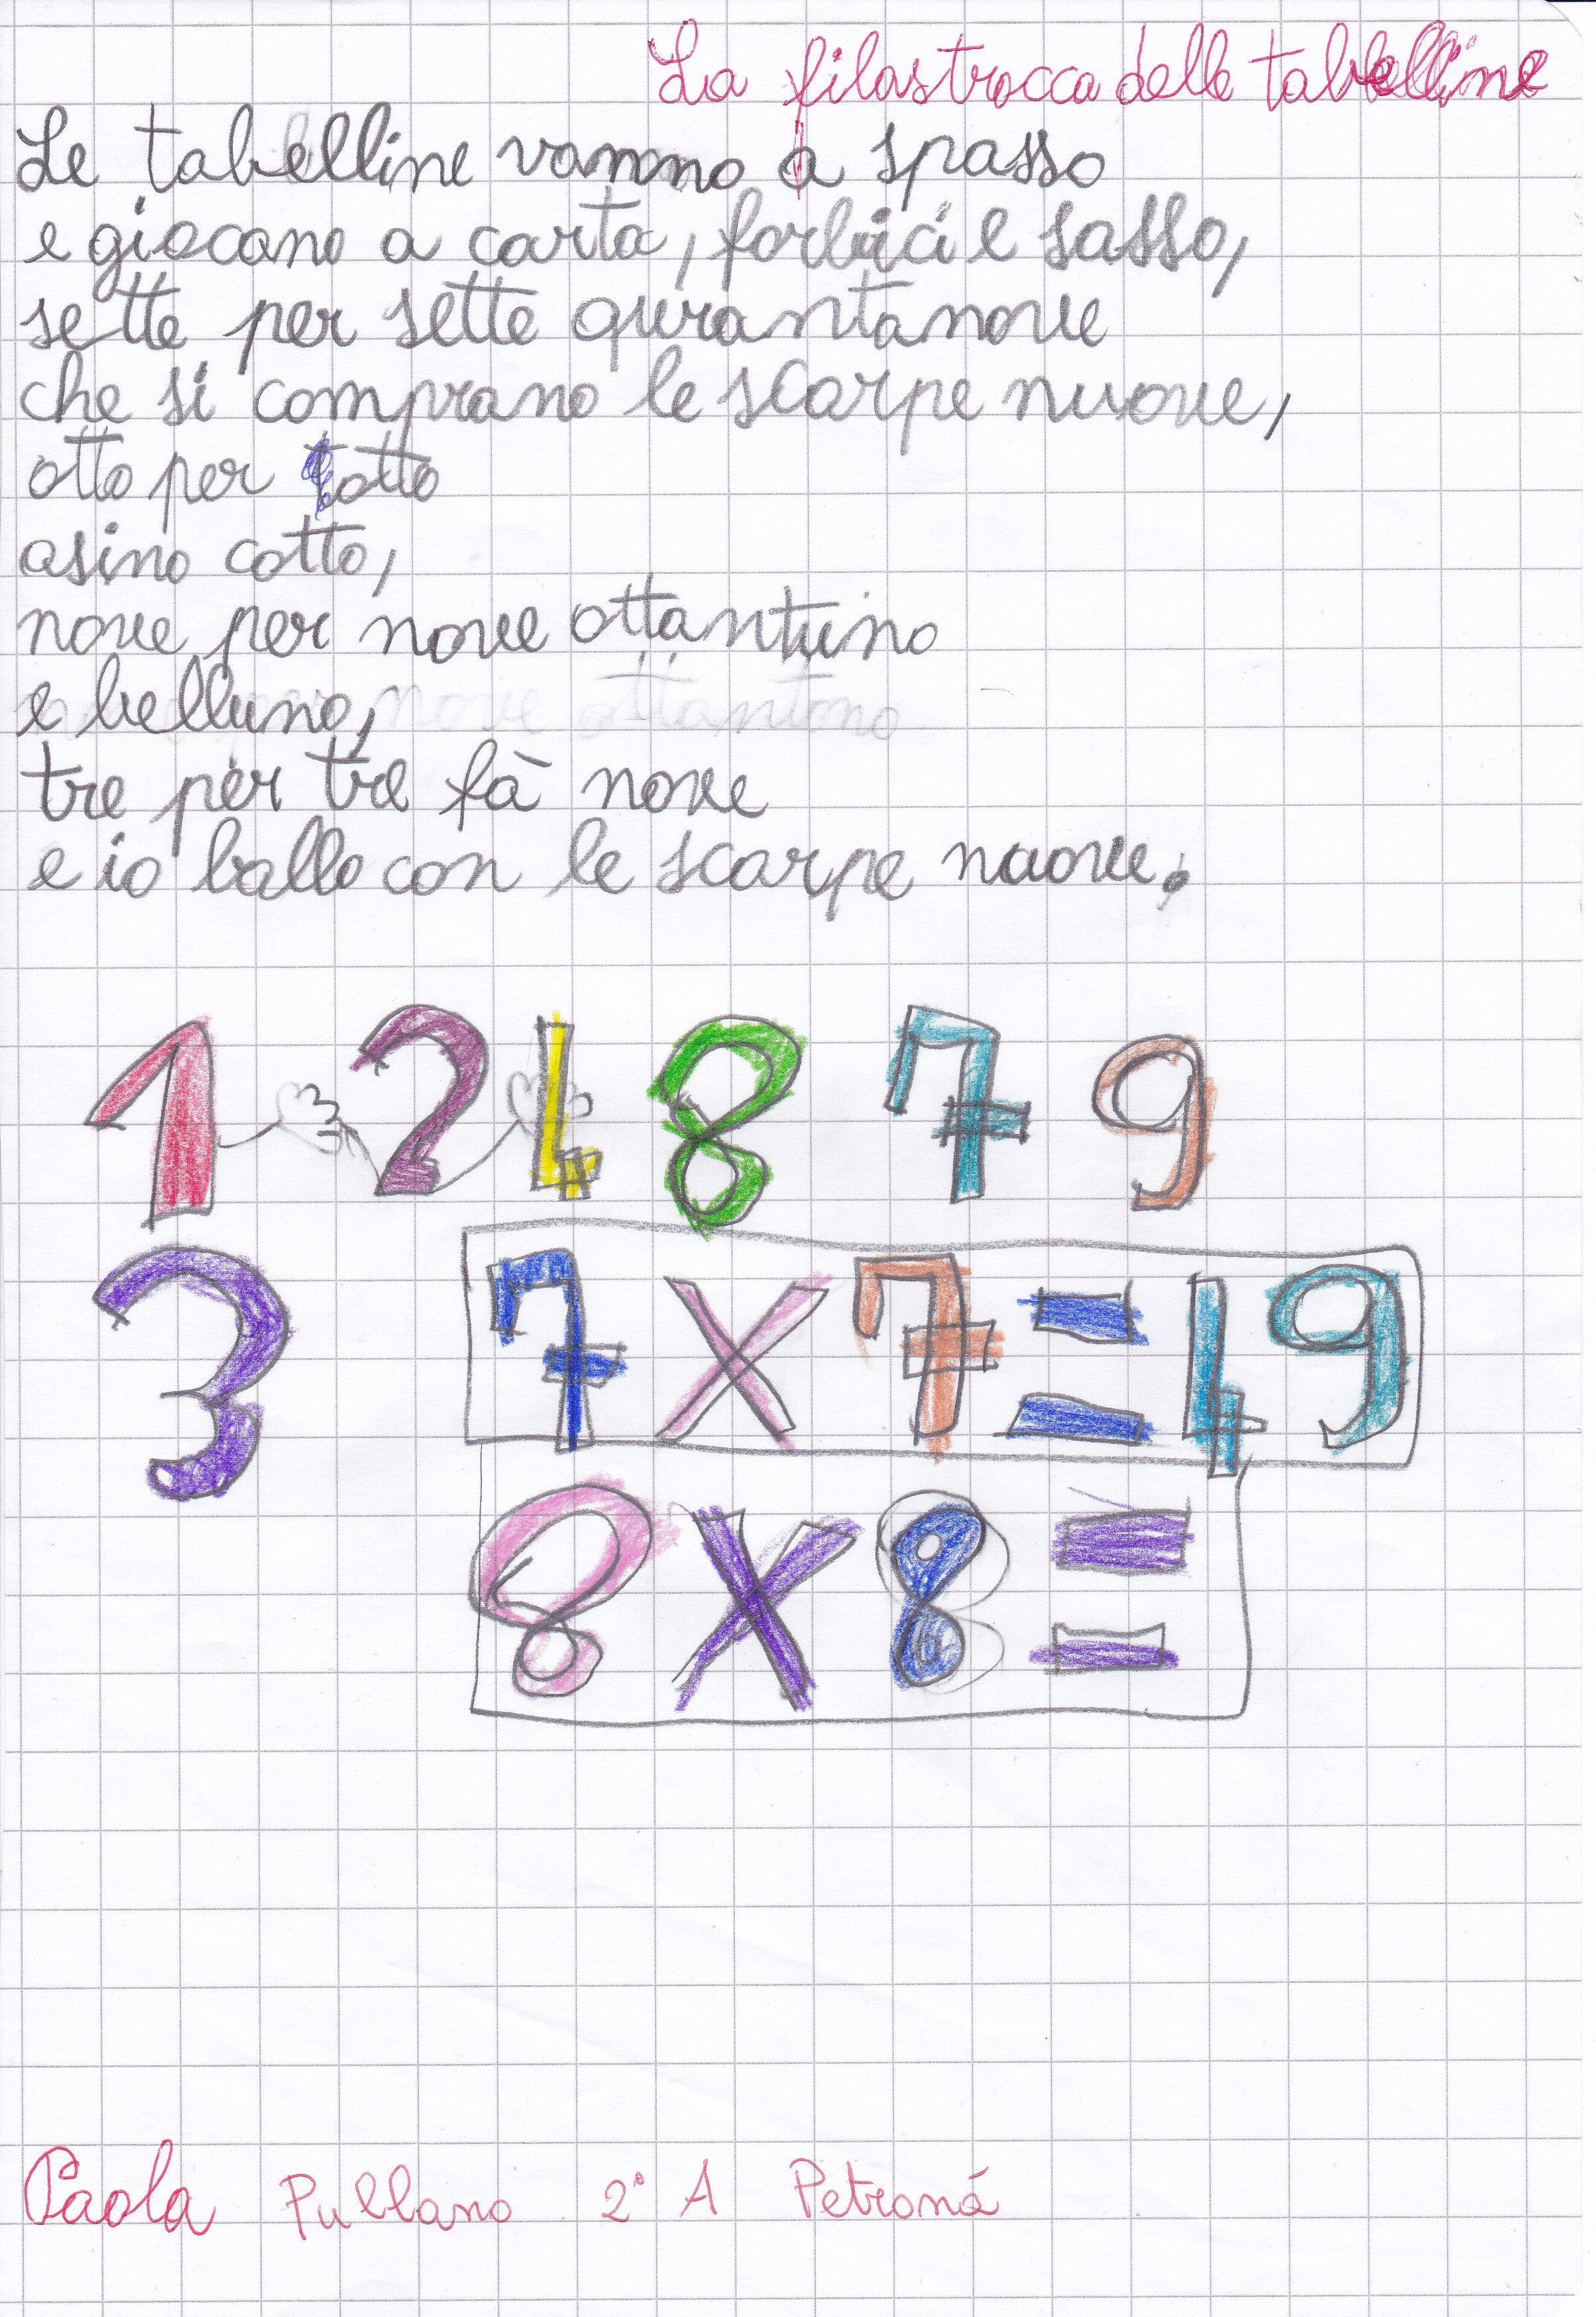 La filastrocca delle tabelline
Le tabelline vanno a spasso
e giocano a carta, forbici e sasso,
sette per sette qurantanove
che si comprano le scarpe nuove,
otto per otto
asino cotto,
nove per nove ottantuno
e belluno,
tre per tre fà nove
e io ballo con le scarpe nuove.
1 2 4 8 7 9
3 7 x 7 = 49
8 x 8 =
Paola Pullano 2° A Petroná